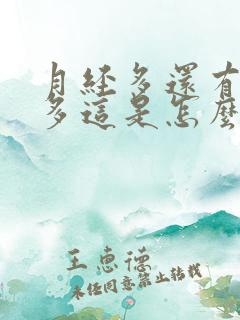 月经多還有
多這是怎麼
王惠德
未经同意禁止转载